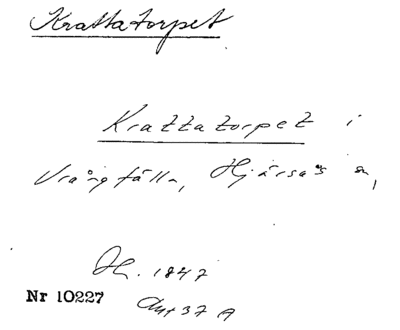 Krattatorpet
Krattatorpet i
Vrångfälla, Hjärsås sn,
Hh. 1847
Nr 10227
Akt 37 A